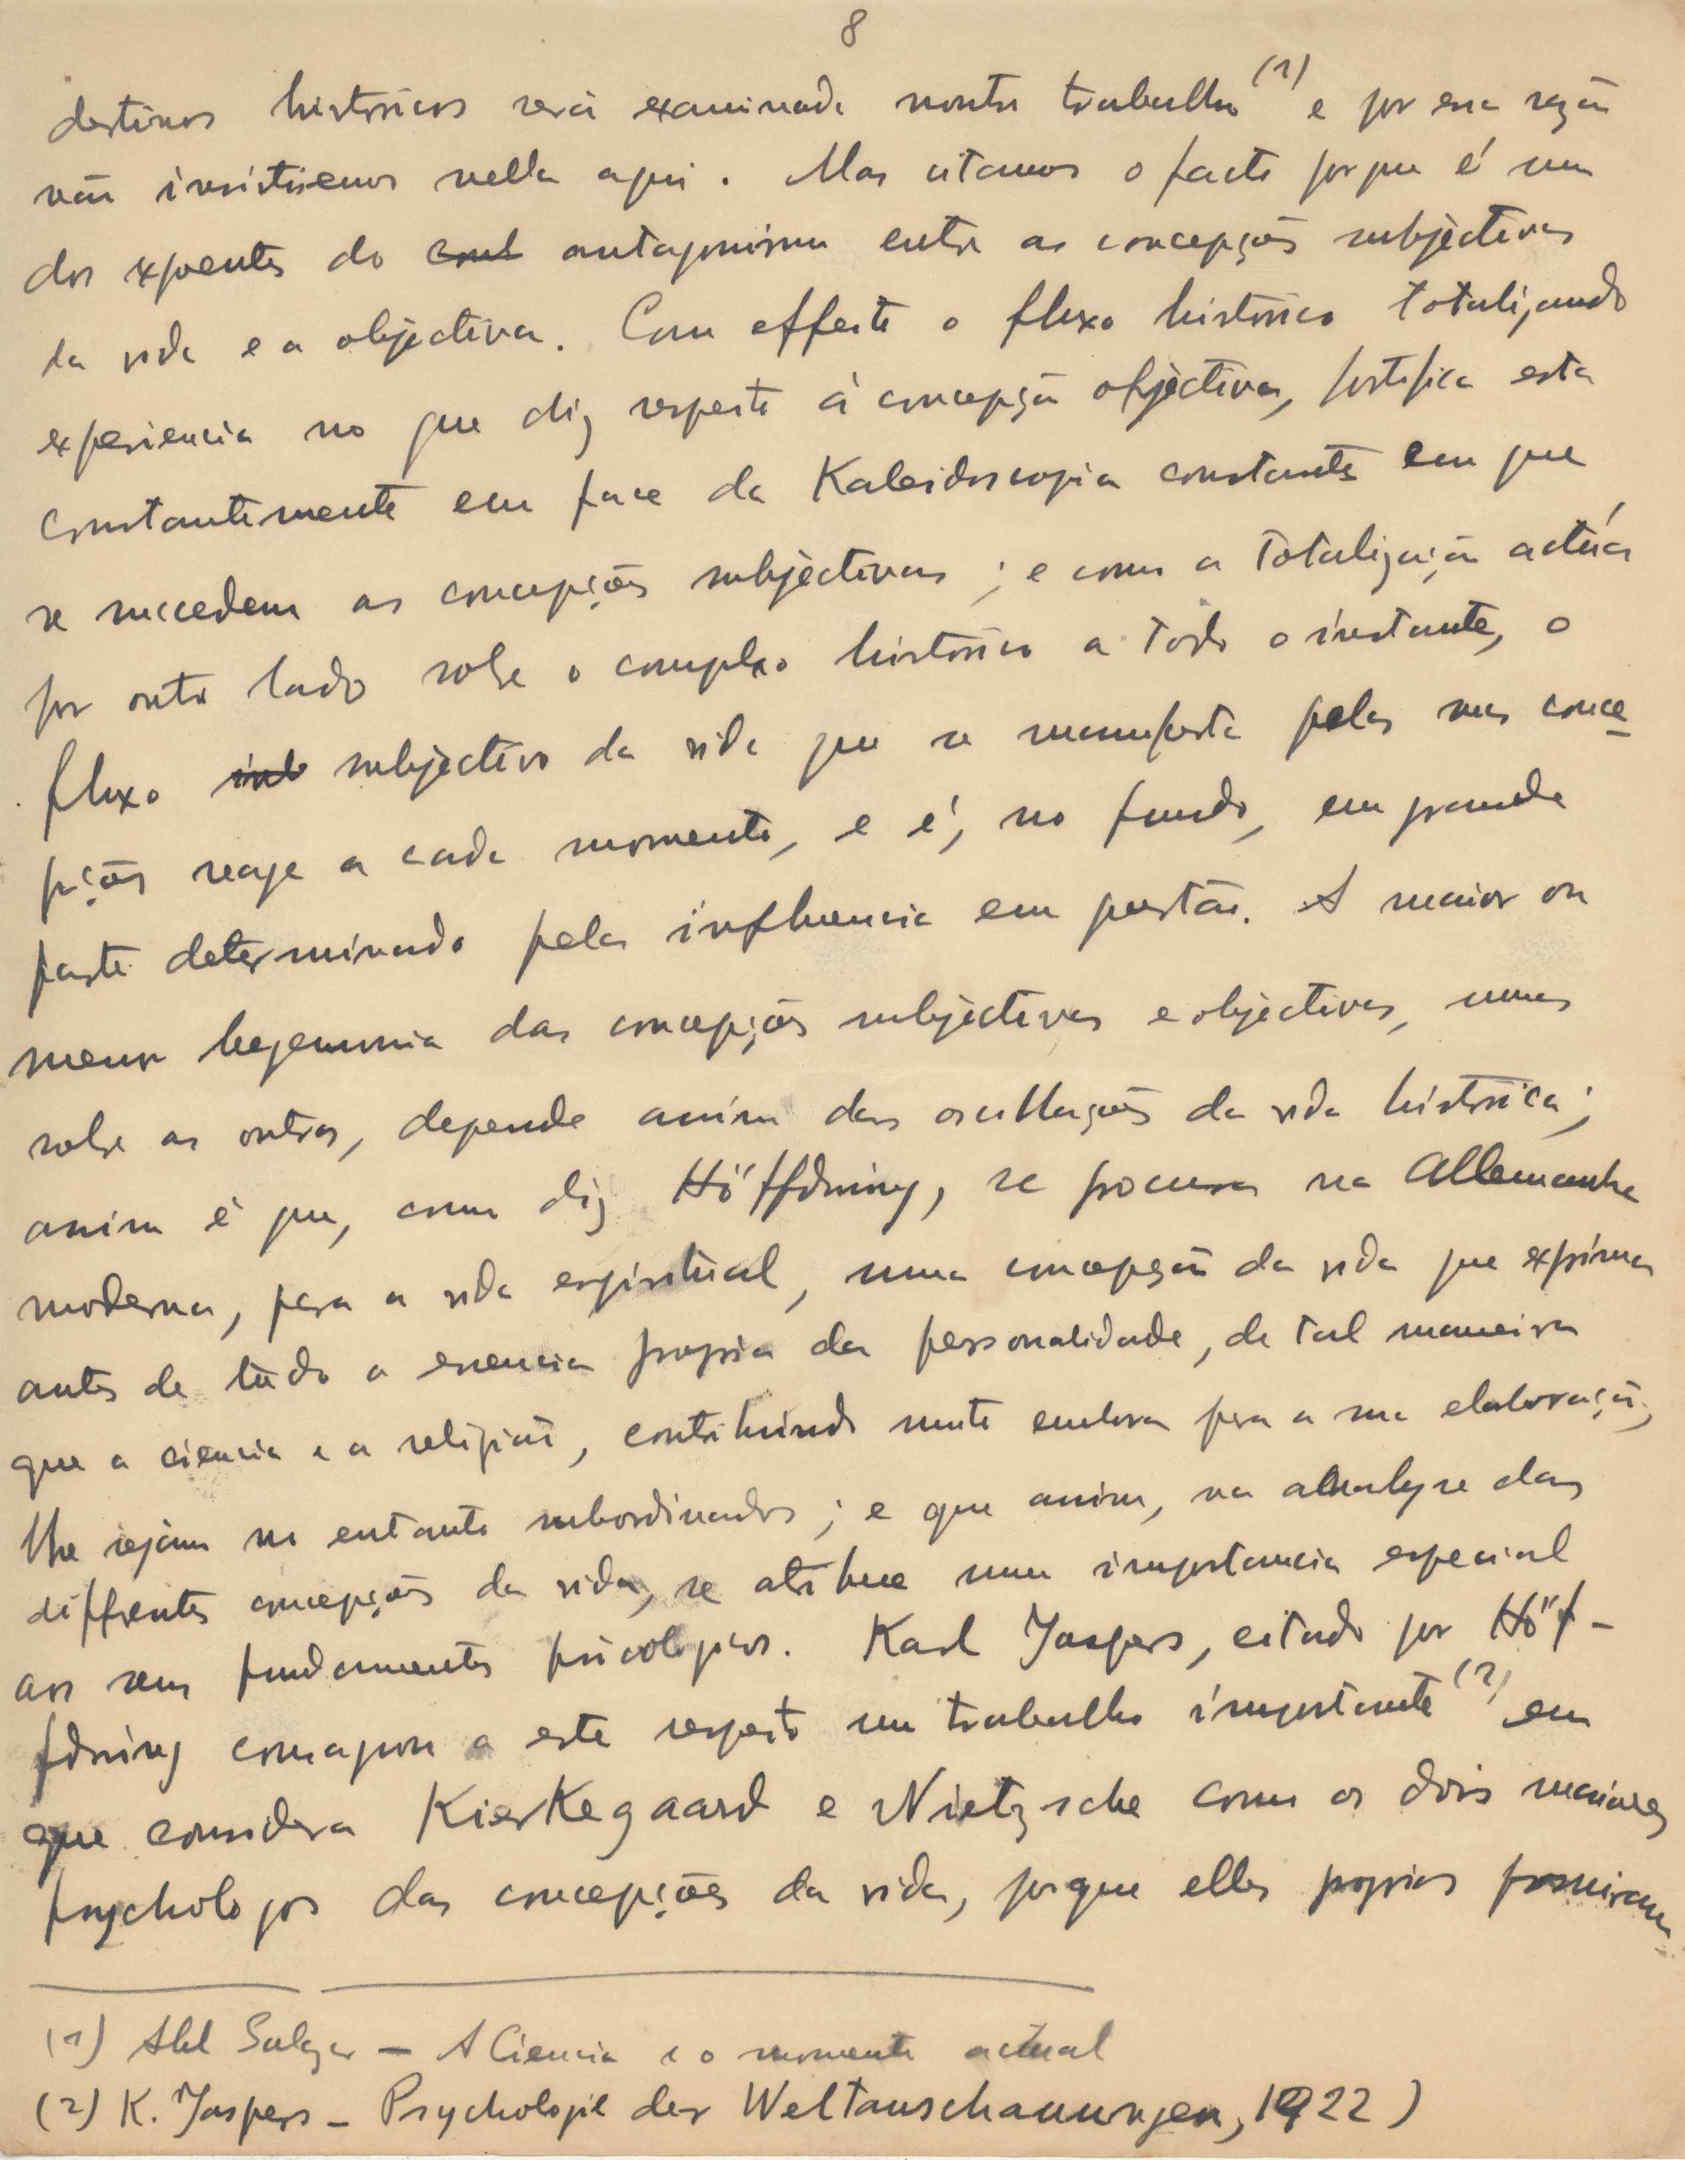 8
destinos historicos será examinada noutro trabalho (1) e por essa razão
não insistiremos nella aqui. Mas citamos o facto porque é um
dos expoentes do antagonismo entre as concepções subjectivas
da vida e a objectiva. Com effeito o fluxo historico totalizando
experiencia no que diz respeito á concepção objectiva, fortifica esta
constantemente em face da Kaleidoscopia constante em que
se succedem as concepções subjectivas; e como a totalização actúa
por outro lado sobre o complexo historico a todo o instante, o
fluxo subjectivo da vida que se manifesta pelas suas conce-
pções reage a cada momento, e é, no fundo, em grande
parte determinado pela influencia em questão. A maior ou
menor hegemonia das concepções subjectivas e objectivas, umas
sobre as outras, depende assim das oscillações da vida historica;
assim é que, como diz Höffdning, se procura na Allemanha
moderna, para a vida espiritual, uma concepção da vida que exprima
antes de tudo a essencia propria da personalidade, de tal maneira
que a ciencia e a religião, contribuindo muito embora para a sua elaboração,
lhe sejam no entanto subordinados; e que assim, na analyse das
diffrentes concepções da vida, se atribue uma importancia especial
aos seus fundamentos psicologicos. Karl Jaspers, citado por Höf-
fdning consagrou a este respeito um trabalho importante (2) em
que considera Kierkegaard e Nietzsche como os dois maiores
psychologos das concepções da vida, porque elles proprios possuiram
(1) Abel Salazar – A Ciencia e o momento actual
(2) K. Jaspers – Psychologie der Weltanschauungen, 1922)